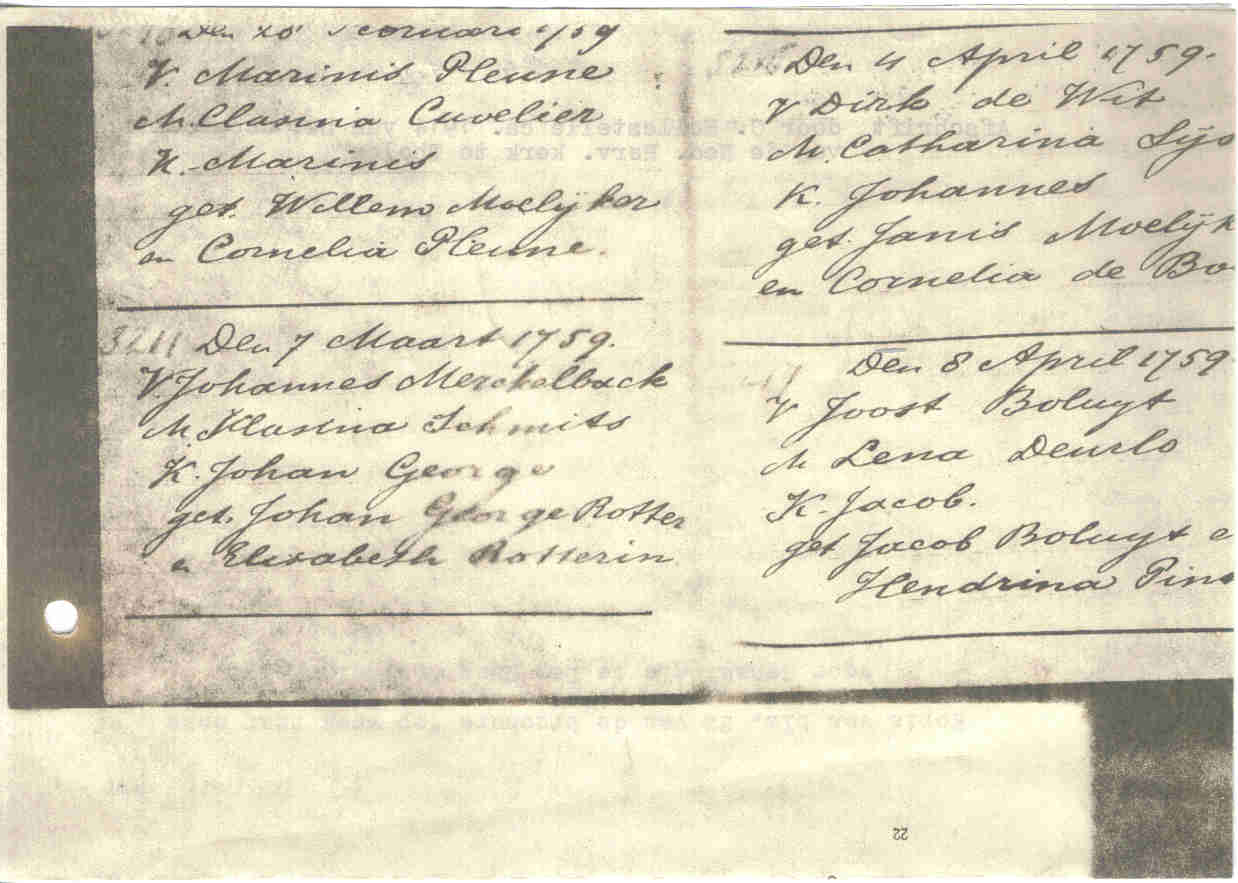 Den 28 Februari 1759
V. Marinis Pleune
M Clasina Cuvelier
K. Marinis
get. Willem Moelijker
en Cornelia Pleune.
3211 Den 7 Maart 1759.
V. Johannes Merckelback
M. Klasina Schmits
K. Johan George
get. Johan George Rotter
en Elisabeth Rotterin
Den 4 April 1759.
V Dirk de Wit
M. Catharina Lijs
K. Johannes
get. Janis Moelijk
en Cornelia de Bo
Den 8 April 1759
V Joost Boluyt
M Lena Deurlo
K. Jacob.
get Jacob Boluyt e
Hendrina Pin
22